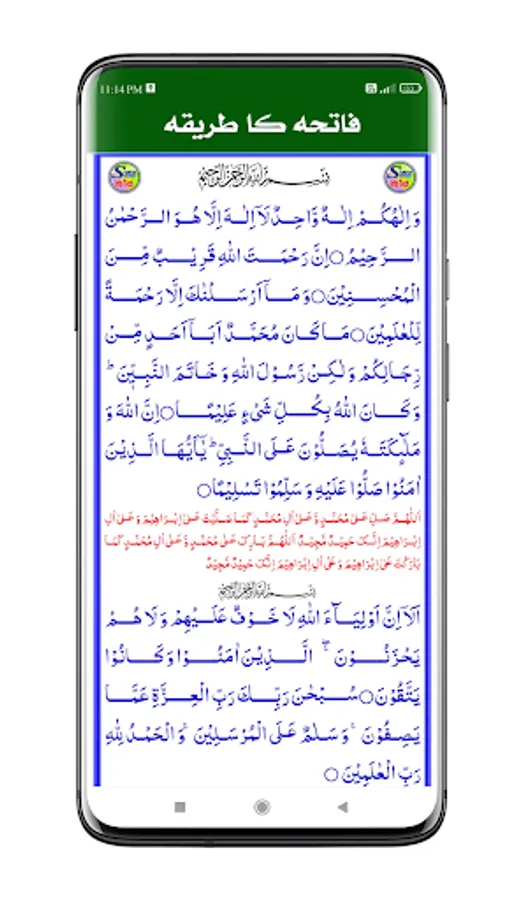 11:14 PM
فاتحه کا طریقه
بِسْمِ اللهِ الرَّحْمٰنِ الرَّحِيْمِ
وَ اِلٰهُكُمْ اِلٰهٌ وَّاحِدٌ لَآ اِلٰهَ اِلَّا هُوَ الرَّحْمٰنُ
الرَّحِيْمُ○اِنَّ رَحْمَتَ اللهِ قَرِيْبٌ مِّنَ
الْمُحْسِنِيْنَ○وَ مَآ اَرْسَلْنٰكَ اِلَّا رَحْمَةً
لِّلْعٰلَمِيْنَ○مَا كَانَ مُحَمَّدٌ اَبَآ اَحَدٍ مِّنْ
رِّجَالِكُمْ وَ لٰكِنْ رَّسُوْلَ اللهِ وَ خَاتَمَ النَّبِيّٖنَ ؕ
وَ كَانَ اللهُ بِكُلِّ شَيْءٍ عَلِيْمًا○اِنَّ اللهَ وَ
مَلٰٓئِكَتَهٗ يُصَلُّوْنَ عَلَى النَّبِيِّ ؕ يٰٓاَيُّهَا الَّذِيْنَ
اٰمَنُوْا صَلُّوْا عَلَيْهِ وَ سَلِّمُوْا تَسْلِيْمًا○
اَللّٰهُمَّ صَلِّ عَلٰی مُحَمَّدٍ وَّ عَلٰی اٰلِ مُحَمَّدٍ كَمَا صَلَّيْتَ عَلٰی اِبْرَاهِيْمَ وَ عَلٰی اٰلِ
اِبْرَاهِيْمَ اِنَّكَ حَمِيْدٌ مَّجِيْدٌ اَللّٰهُمَّ بَارِكْ عَلٰی مُحَمَّدٍ وَّ عَلٰی اٰلِ مُحَمَّدٍ كَمَا
بَارَكْتَ عَلٰی اِبْرَاهِيْمَ وَ عَلٰی اٰلِ اِبْرَاهِيْمَ اِنَّكَ حَمِيْدٌ مَّجِيْدٌ
بِسْمِ اللهِ الرَّحْمٰنِ الرَّحِيْمِ
اَلَآ اِنَّ اَوْلِيَآءَ اللهِ لَا خَوْفٌ عَلَيْهِمْ وَ لَا هُمْ
يَحْزَنُوْنَ ۚۖ الَّذِيْنَ اٰمَنُوْا وَ كَانُوْا
يَتَّقُوْنَ○سُبْحٰنَ رَبِّكَ رَبِّ الْعِزَّةِ عَمَّا
يَصِفُوْنَ ۚ وَ سَلٰمٌ عَلَى الْمُرْسَلِيْنَ ۚ وَ الْحَمْدُ لِلّٰهِ
رَبِّ الْعٰلَمِيْنَ ○